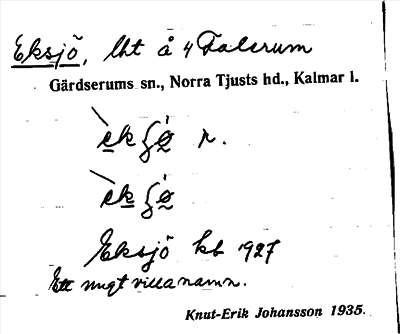 Eksjö, lht å 4 Falerum
Gärdserums sn., Norra Tjusts hd., Kalmar l.
Eksjö kb 1927
Ett nugt villanamn.
Knut-Erik Johansson 1935.